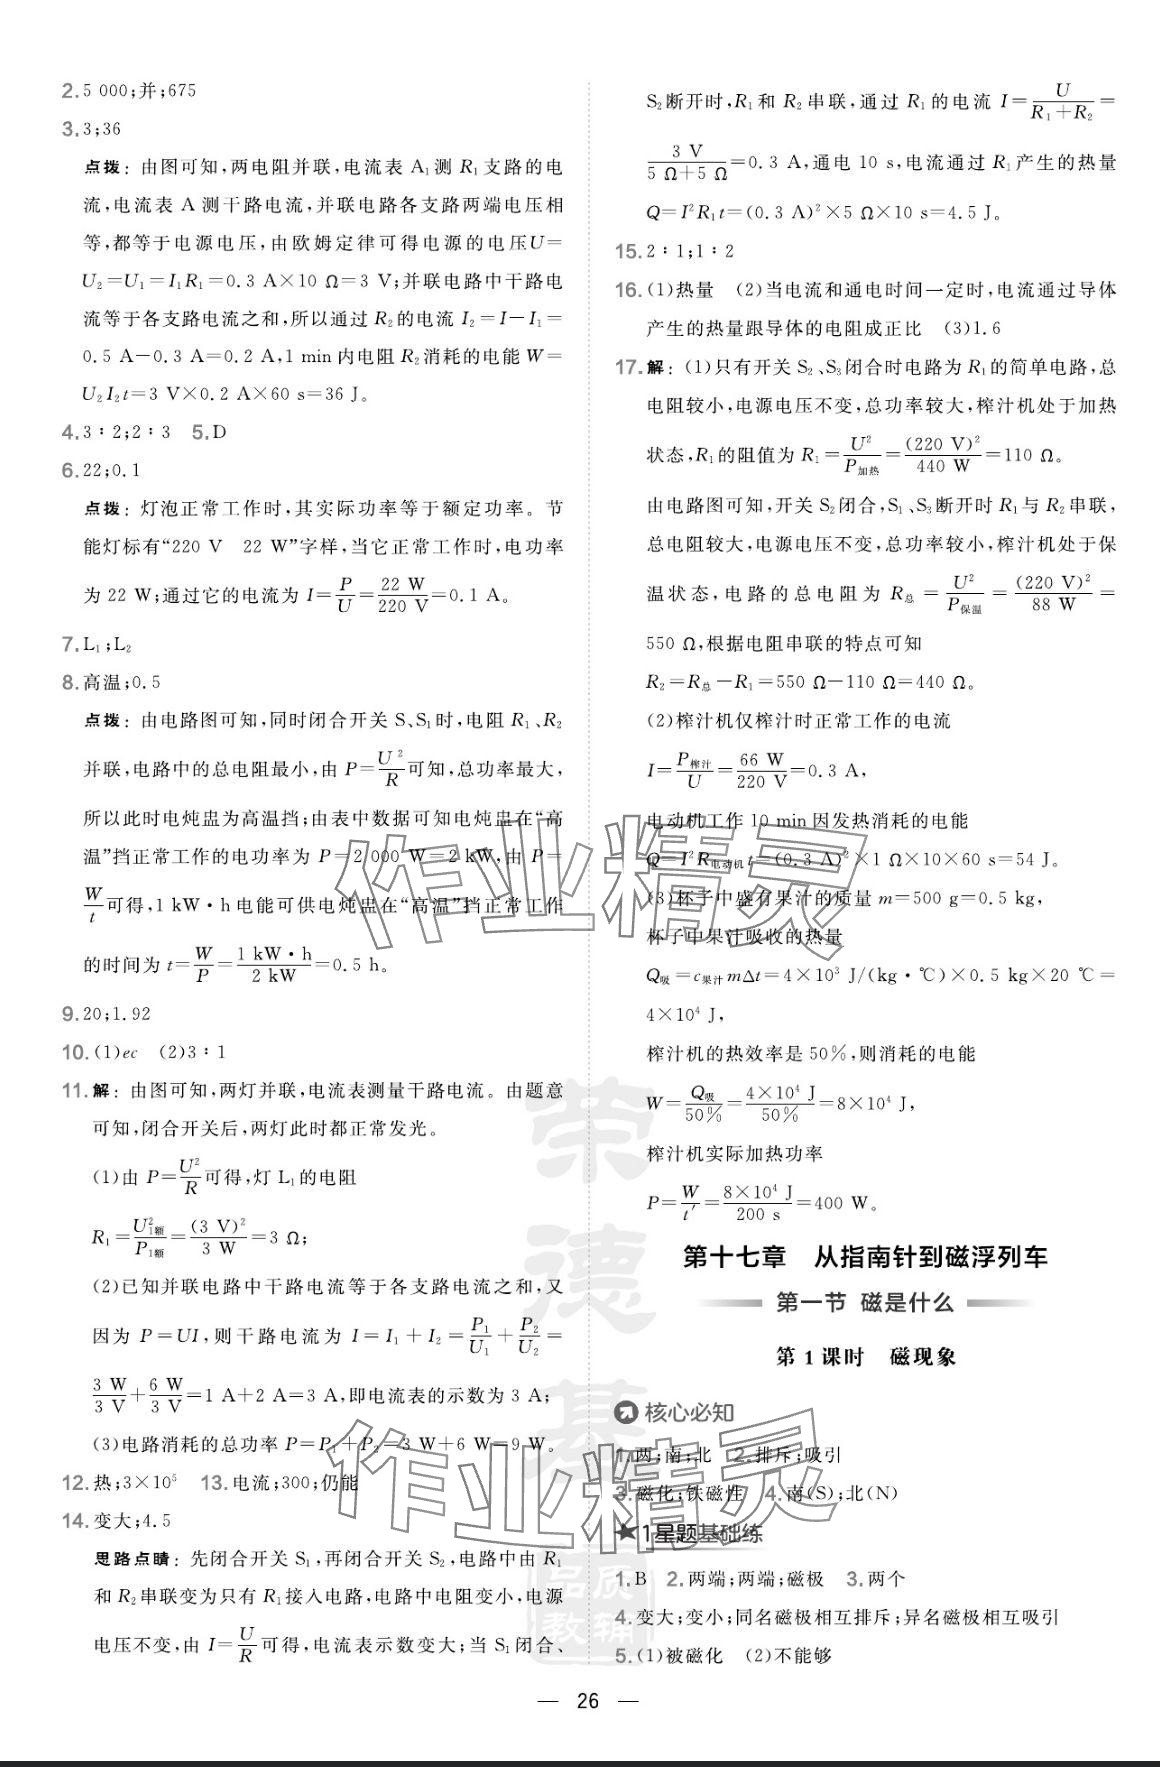 2. 5 000;并;675
3. 3;36
点拨：由图可知,两电阻并联,电流表 A₁测 R₁支路的电
流,电流表 A 测干路电流,并联电路各支路两端电压相
等,都等于电源电压,由欧姆定律可得电源的电压U=
U₂=U₁=I₁R₁=0.3 A×10 Ω=3 V;并联电路中干路电
流等于各支路电流之和,所以通过 R₂的电流 I₂=I-I₁=
0.5 A-0.3 A=0.2 A,1 min内电阻 R₂消耗的电能 W=
U₂I₂t=3 V×0.2 A×60 s=36 J。
4. 3∶2;2∶3 5. D
6. 22;0.1
点拨：灯泡正常工作时,其实际功率等于额定功率。节
能灯标有“220 V 22 W”字样,当它正常工作时,电功率
为 22 W;通过它的电流为 I=P/U=22 W/220 V=0.1 A。
7. L₁;L₂
8. 高温;0.5
点拨：由电路图可知,同时闭合开关 S、S₁时,电阻 R₁、R₂
并联,电路中的总电阻最小,由 P=U²/R可知,总功率最大,
所以此时电炖盅为高温挡;由表中数据可知电炖盅在“高
温”挡正常工作的电功率为 P=2 000 W=2 kW,由 P=
W/t可得,1 kW·h电能可供电炖盅在“高温”挡正常工作
的时间为 t=W/P=1 kW·h/2 kW=0.5 h。
9. 20;1.92
10. (1)ec (2)3∶1
11. 解：由图可知,两灯并联,电流表测量干路电流。由题意
可知,闭合开关后,两灯此时都正常发光。
(1)由 P=U²/R可得,灯 L₁的电阻
R₁=U²₁额/P₁额=(3 V)²/3 W=3 Ω;
(2)已知并联电路中干路电流等于各支路电流之和,又
因为 P=UI,则干路电流为 I=I₁+I₂=P₁/U₁+P₂/U₂=
3 W/3 V+6 W/3 V=1 A+2 A=3 A,即电流表的示数为 3 A;
(3)电路消耗的总功率 P=P₁+P₂=3 W+6 W=9 W。
12. 热;3×10⁵ 13. 电流;300;仍能
14. 变大;4.5
思路点睛：先闭合开关 S₁,再闭合开关 S₂,电路中由 R₁
和 R₂串联变为只有 R₁接入电路,电路中电阻变小,电源
电压不变,由 I=U/R可得,电流表示数变大;当 S₁闭合、
S₂断开时,R₁和 R₂串联,通过 R₁的电流 I=U/(R₁+R₂)=
3 V/(5 Ω+5 Ω)=0.3 A,通电 10 s,电流通过 R₁产生的热量
Q=I²R₁t=(0.3 A)²×5 Ω×10 s=4.5 J。
15. 2∶1;1∶2
16. (1)热量 (2)当电流和通电时间一定时,电流通过导体
产生的热量跟导体的电阻成正比 (3)1.6
17. 解：(1)只有开关 S₂、S₃闭合时电路为 R₁的简单电路,总
电阻较小,电源电压不变,总功率较大,榨汁机处于加热
状态,R₁的阻值为 R₁=U²/P加热=(220 V)²/440 W=110 Ω。
由电路图可知,开关 S₂闭合,S₁、S₃断开时 R₁与 R₂串联,
总电阻较大,电源电压不变,总功率较小,榨汁机处于保
温状态,电路的总电阻为 R总=U²/P保温=(220 V)²/88 W=
550 Ω,根据电阻串联的特点可知
R₂=R总-R₁=550 Ω-110 Ω=440 Ω。
(2)榨汁机仅榨汁时正常工作的电流
I=P榨汁/U=66 W/220 V=0.3 A,
电动机工作 10 min因发热消耗的电能
Q=I²R电动机t=(0.3 A)²×1 Ω×10×60 s=54 J。
(3)杯子中盛有果汁的质量 m=500 g=0.5 kg,
杯子中果汁吸收的热量
Q吸=c果汁mΔt=4×10³ J/(kg·℃)×0.5 kg×20 ℃=
4×10⁴ J,
榨汁机的热效率是 50%,则消耗的电能
W=Q吸/50%=4×10⁴ J/50%=8×10⁴ J,
榨汁机实际加热功率
P=W/t′=8×10⁴ J/200 s=400 W。
第十七章 从指南针到磁浮列车
第一节 磁是什么
第 1 课时 磁现象
核心必知
1. 两;南;北 2. 排斥;吸引
3. 磁化;铁磁性 4. 南(S);北(N)
★1星题基础练
1. B 2. 两端;两端;磁极 3. 两个
4. 变大;变小;同名磁极相互排斥;异名磁极相互吸引
5. (1)被磁化 (2)不能够
— 26 —
作业精灵
作业精灵
荣德基
品质
教辅